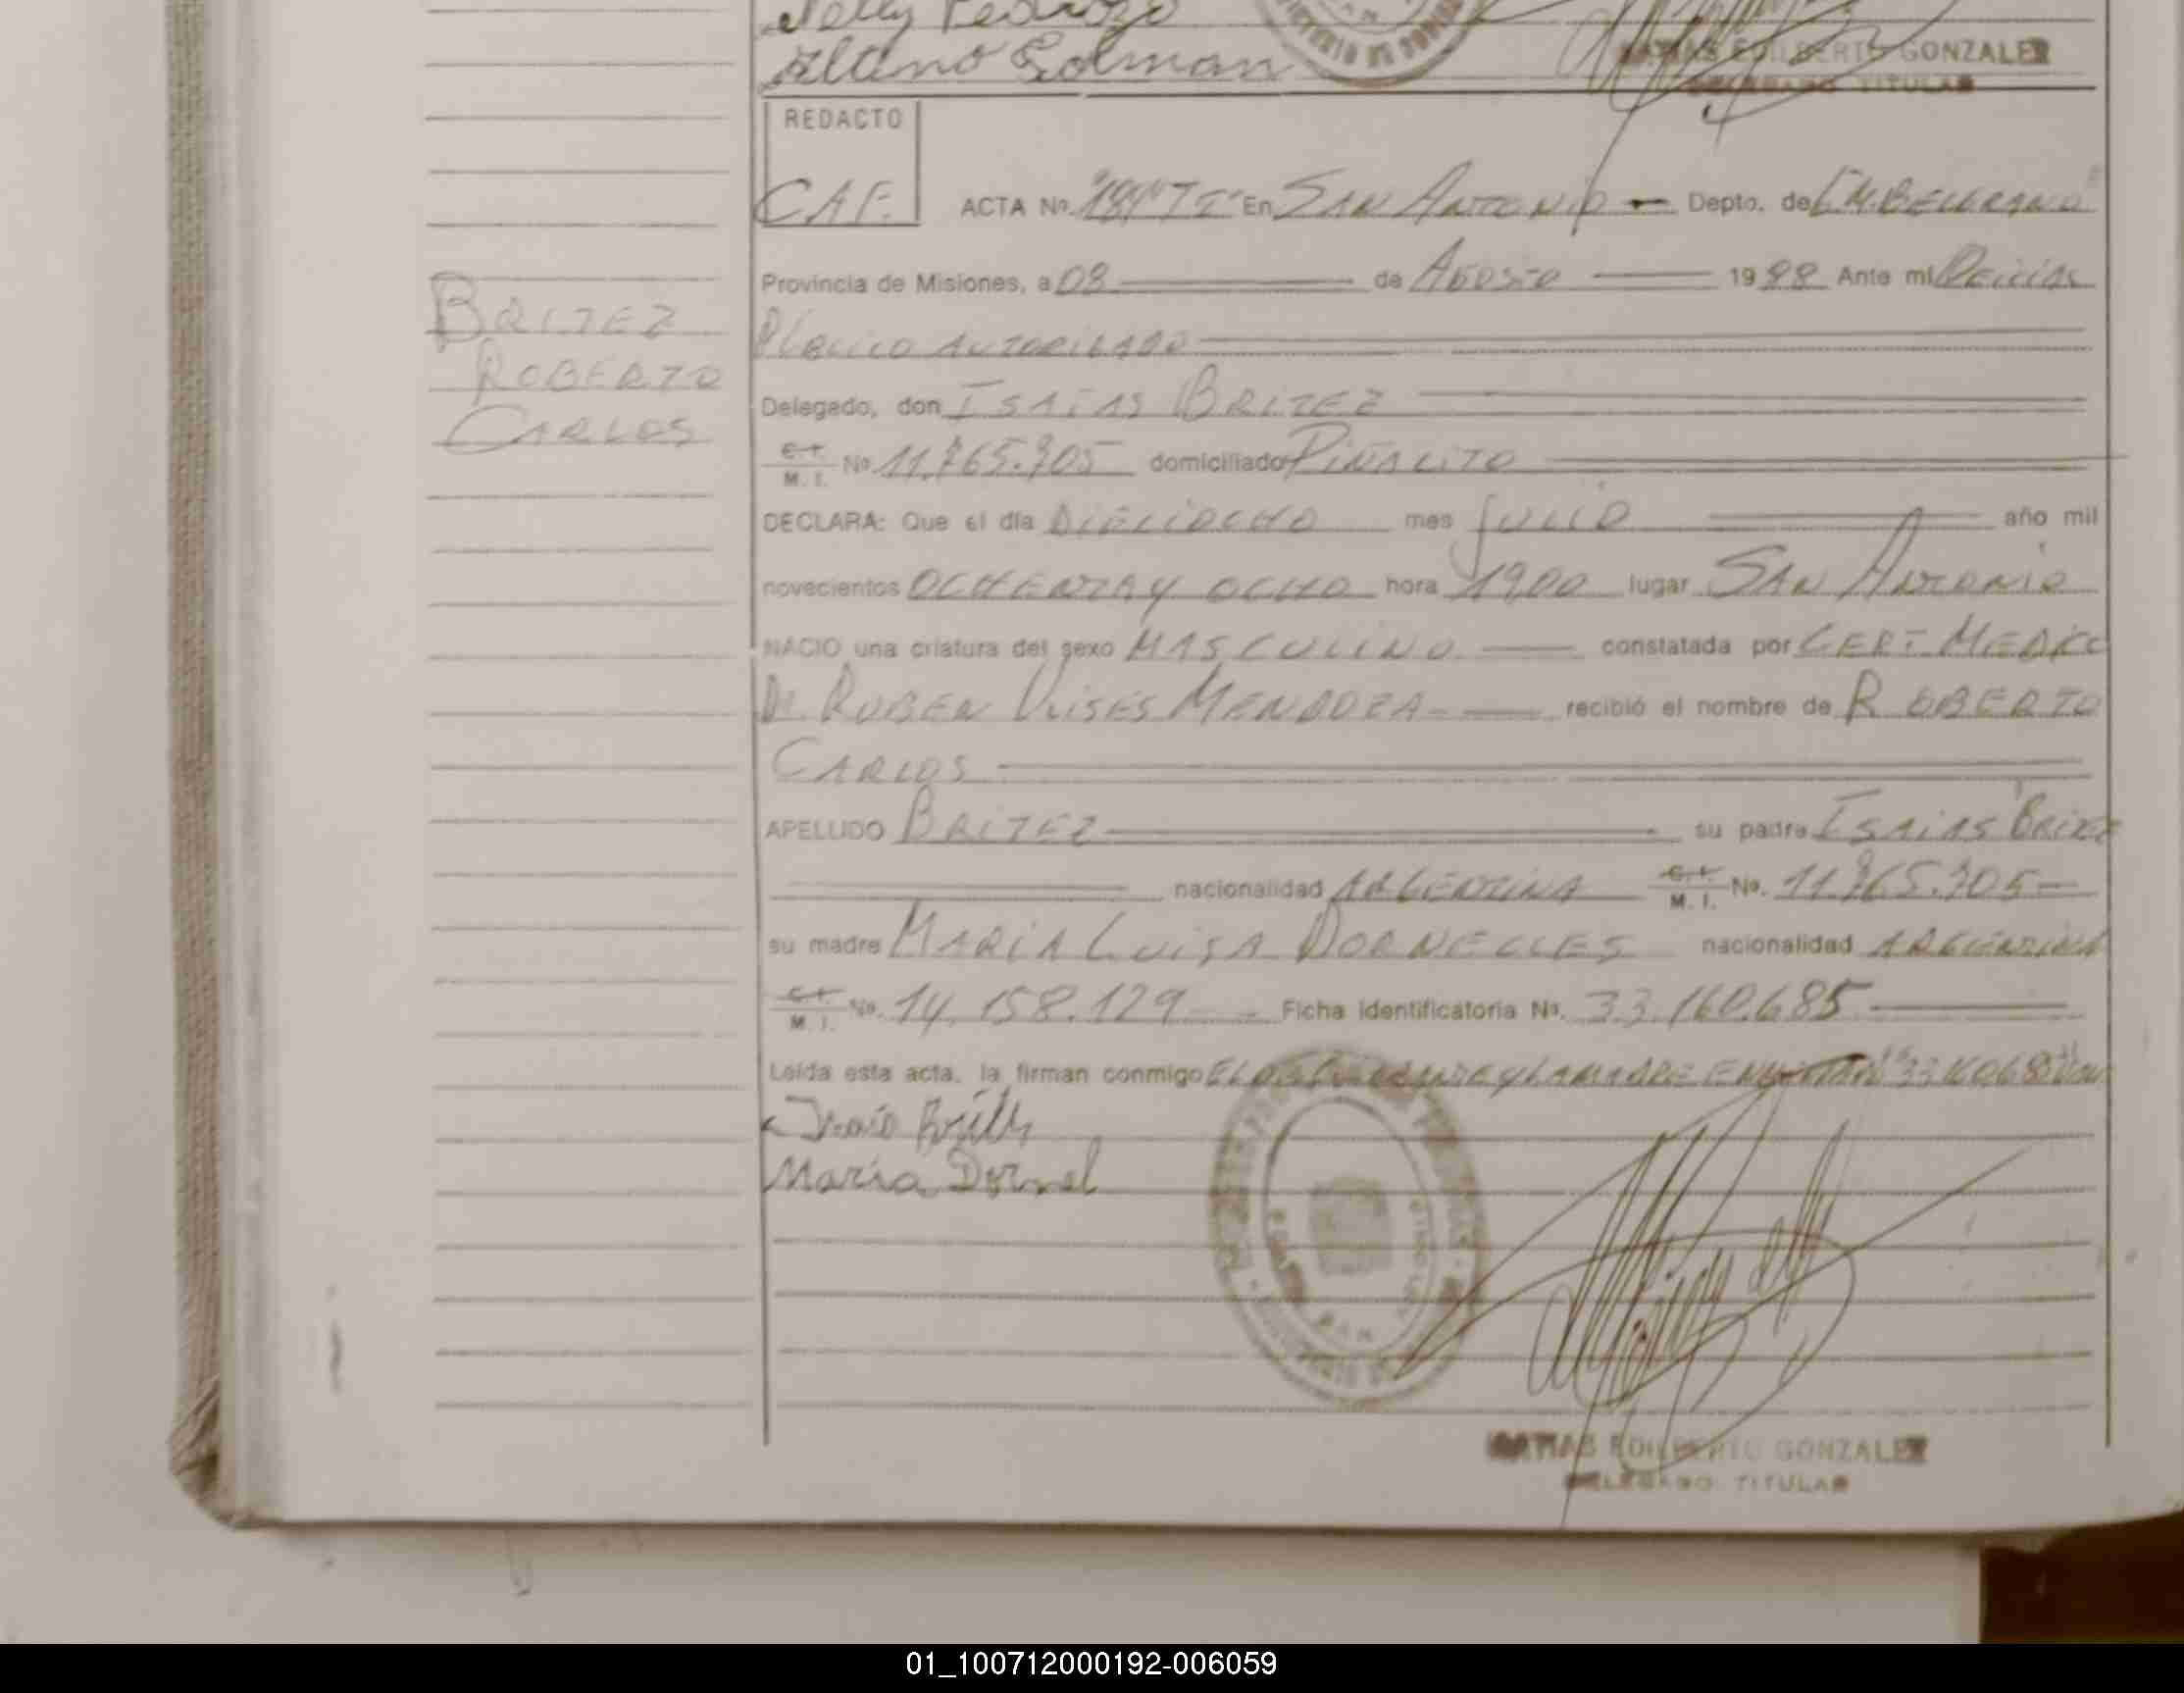 Nelly Pedrozo
Solman
GONZALEZ
DELEGADO TITULAR
REDACTO
CAF.
ACTA Nº En SAN ANTONIO — Depto. de BELGRANO
Provincia de Misiones, a 08 de AGOSTO 1988 Ante mi OFICIAL
PUBLICO AUTORIZADO
BRITEZ
ROBERTO
CARLOS
Delegado, don ISAIAS BRITEZ
C.I. M. I. Nº 11.765.705 domiciliado PIÑALITO
DECLARA: Que el día DIECIOCHO mes JULIO año mil
novecientos OCHENTA Y OCHO hora 1900 lugar SAN ANTONIO
NACIO una criatura del sexo MASCULINO constatada por CERT MEDICO
Dr. RUBEN ULISES MENDOZA recibió el nombre de ROBERTO
CARLOS
APELLIDO BRITEZ su padre ISAIAS BRITEZ
nacionalidad ARGENTINA C.I. M. I. Nº. 11.765.705
su madre MARIA LUISA DORNELLES nacionalidad ARGENTINA
C.I. M. I. Nº. 14.158.129 Ficha identificatoria Nº. 33.160.685
Leída esta acta, la firman conmigo EL Y LA MADRE
María Dornel
GONZALEZ
DELEGADO TITULAR
01_100712000192-006059